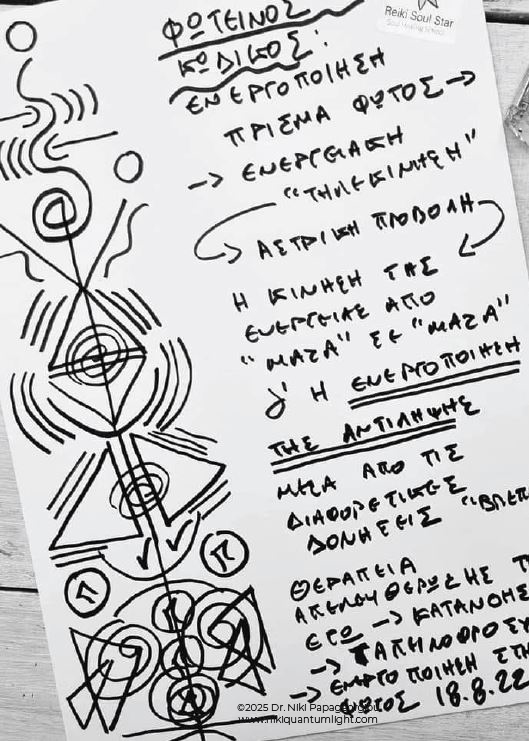 Reiki Soul Star
Soul Healing School
ΦΩΤΕΙΝΟΣ
ΚΩΔΙΚΟΣ:
ΕΝΕΡΓΟΠΟΙΗΣΗ
ΠΡΙΣΜΑ ΦΩΤΟΣ →
→ ΕΝΕΡΓΕΙΑΚΗ
"ΤΗΛΕΚΙΝΗΣΗ"
ΑΣΤΡΙΚΗ ΠΡΟΒΟΛΗ
Η ΚΙΝΗΣΗ ΤΗΣ
ΕΝΕΡΓΕΙΑΣ ΑΠΟ
"ΜΑΖΑ" ΣΕ "ΜΑΖΑ"
Η ΕΝΕΡΓΟΠΟΙΗΣΗ
ΤΗΣ ΑΝΤΙΛΗΨΗΣ
ΜΕΣΑ ΑΠΟ ΤΙΣ
ΔΙΑΦΟΡΕΤΙΚΕΣ
ΔΟΝΗΣΕΙΣ
ΘΕΡΑΠΕΙΑ
ΑΠΕΛΕΥΘΕΡΩΣΗΣ
ΕΓΩ →
→
→ ΕΜΠΙΣΤΟΠΟΙΗΣΗ
18.8.22
©2025 Dr. Niki Papageorgiou
www.nikiquantumlight.com